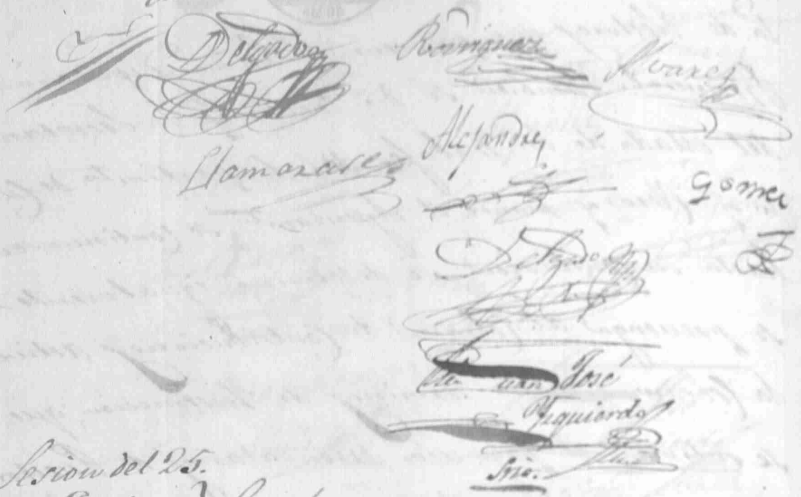 Delgado Rodriguez Alvarez
Llamazares Alejandre Gomez
Delgado
Juan José
Yzquierdo
Srio.
Sesion del 25.